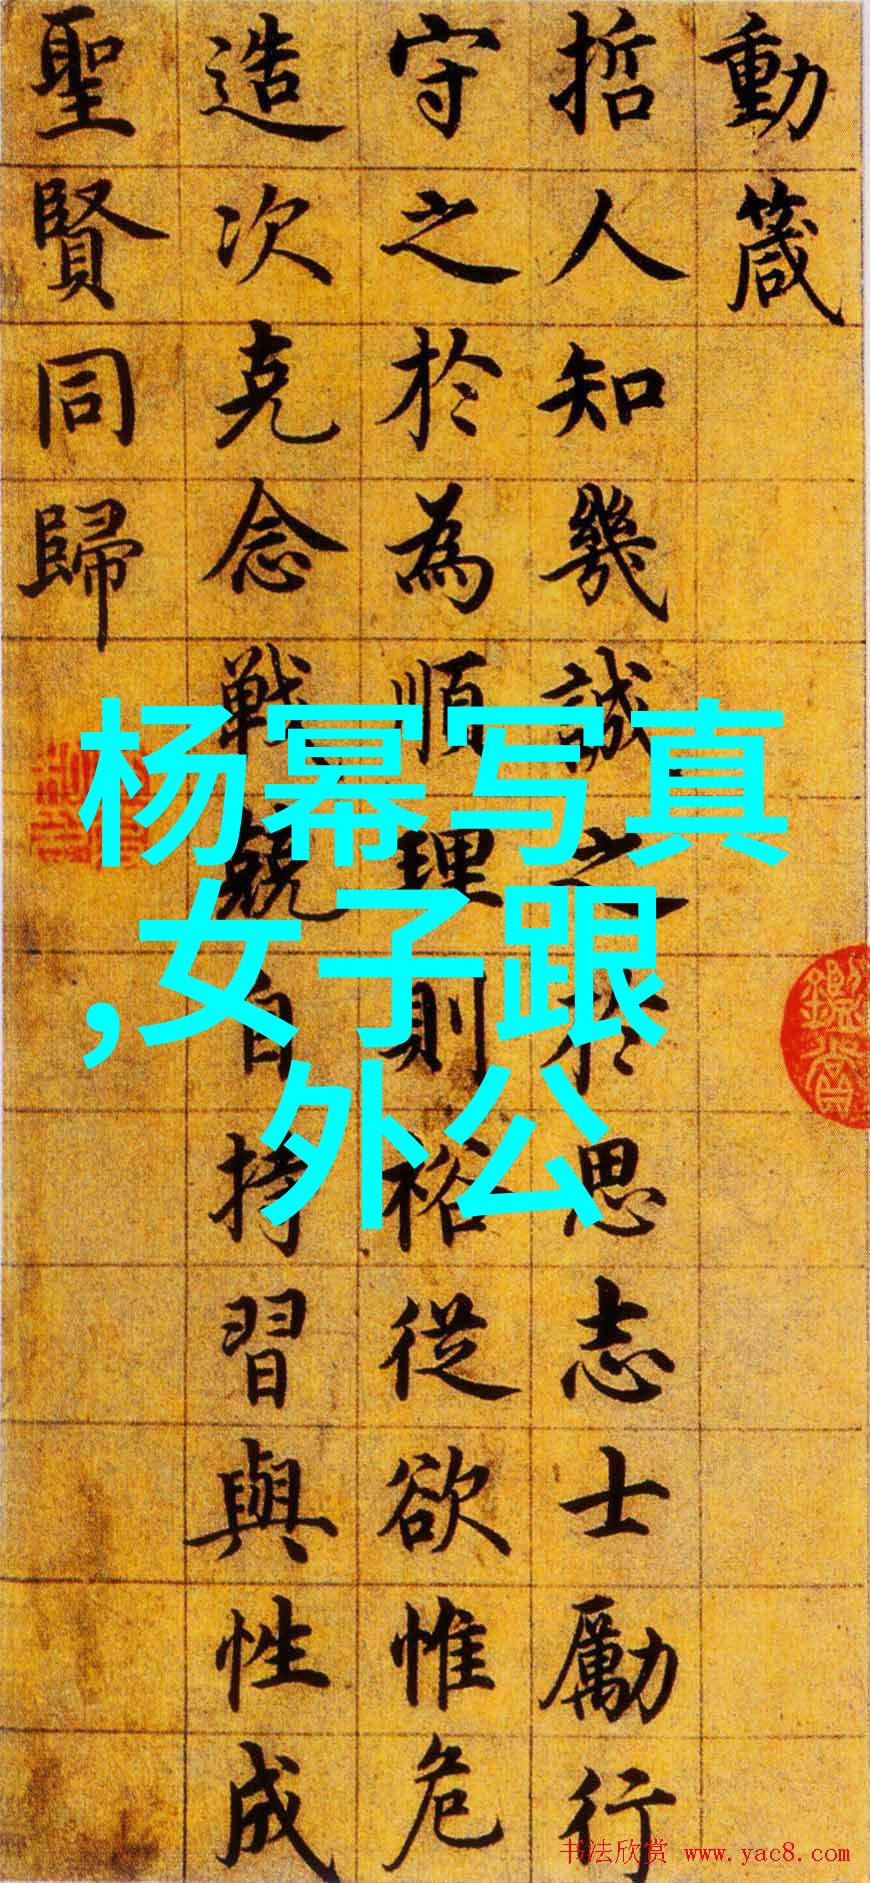 動箴
哲人知幾誠之於思志士勵行
守之於為順理則裕從欲惟危
造次克念戰兢自持習與性成
聖賢同歸
杨幂写真
,女子跟
外公
书法欣赏 www.yac8.com